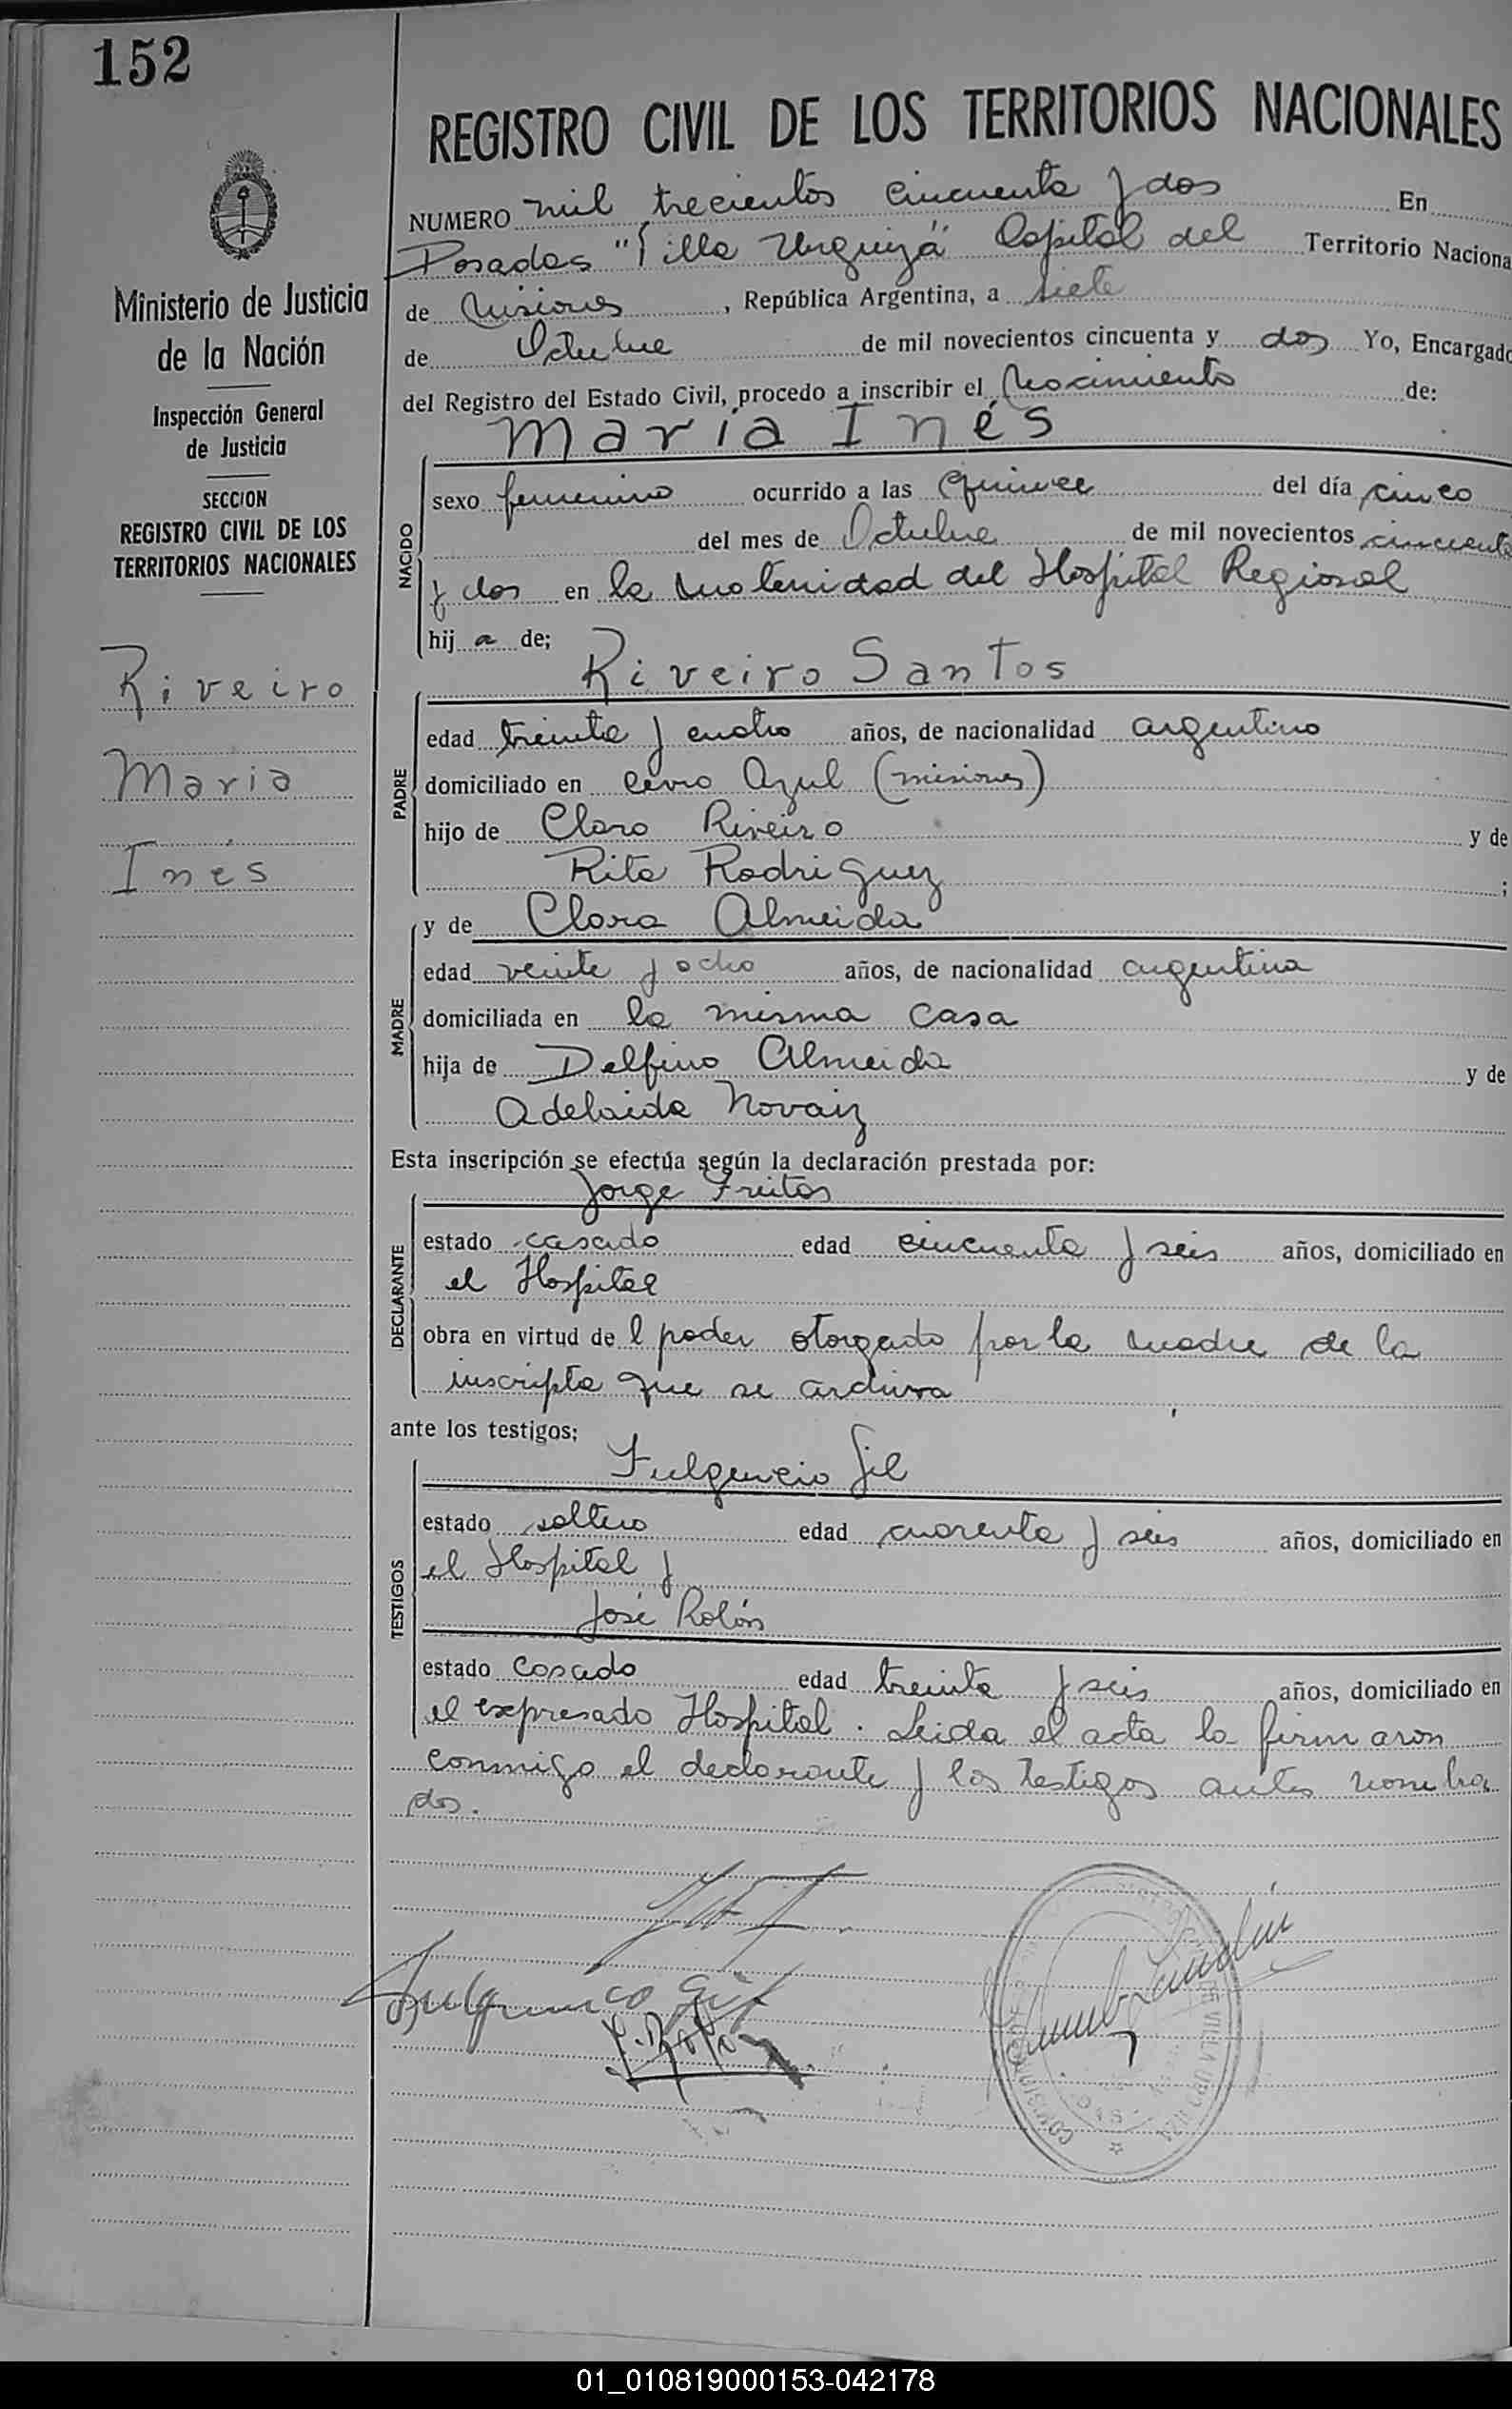 152
Ministerio de Justicia
de la Nación
Inspección General
de Justicia
SECCION
REGISTRO CIVIL DE LOS
TERRITORIOS NACIONALES
Riveiro
Maria
Inés
REGISTRO CIVIL DE LOS TERRITORIOS NACIONALES
NUMERO mil trecientos cincuenta y dos En
Posadas "Villa Urquiza" Capital del Territorio Naciona
de Misiones, República Argentina, a siete
de Octubre de mil novecientos cincuenta y dos Yo, Encargado
del Registro del Estado Civil, procedo a inscribir el Nacimiento de:
María Inés
NACIDO
sexo femenino ocurrido a las quince del día cinco
del mes de Octubre de mil novecientos cincuenta
y dos en la Maternidad del Hospital Regional
hij a de;
Riveiro Santos
PADRE
edad treinta y cuatro años, de nacionalidad argentino
domiciliado en Cerro Azul (misiones)
hijo de Claro Riveiro y de
Rita Rodriguez ;
y de Clara Almeida
MADRE
edad veinte y ocho años, de nacionalidad argentina
domiciliada en la misma casa
hija de Delfino Almeida y de
Adelaida Novaiz
Esta inscripción se efectúa según la declaración prestada por:
Jorge Freitas
DECLARANTE
estado casado edad cincuenta y seis años, domiciliado en
el Hospital
obra en virtud de l poder otorgado por la madre de la
inscripta que se archiva
ante los testigos;
Fulgencio Gil
TESTIGOS
estado soltero edad cuarenta y seis años, domiciliado en
el Hospital y
José Rolón
estado Casado edad treinta y seis años, domiciliado en
el expresado Hospital. Leida el acta la firmaron
conmigo el declarante y los testigos antes nombra
dos.
Fulgencio Gil
J. Rolón
DE VILLA URQUIZA
01_010819000153-042178